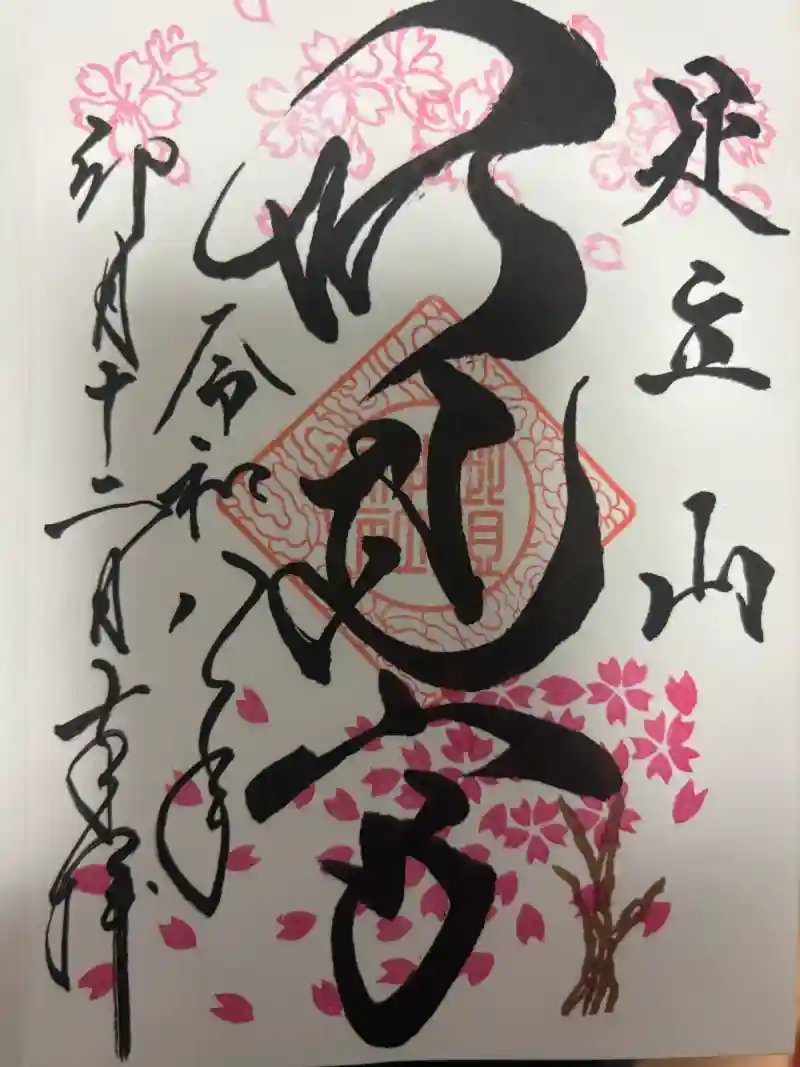 足立山
妙見宮
令和八年
卯月十二日奉拝